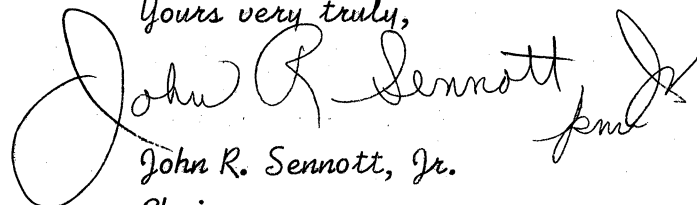 Yours very truly,
John R Sennott Jr
John R. Sennott, Jr.